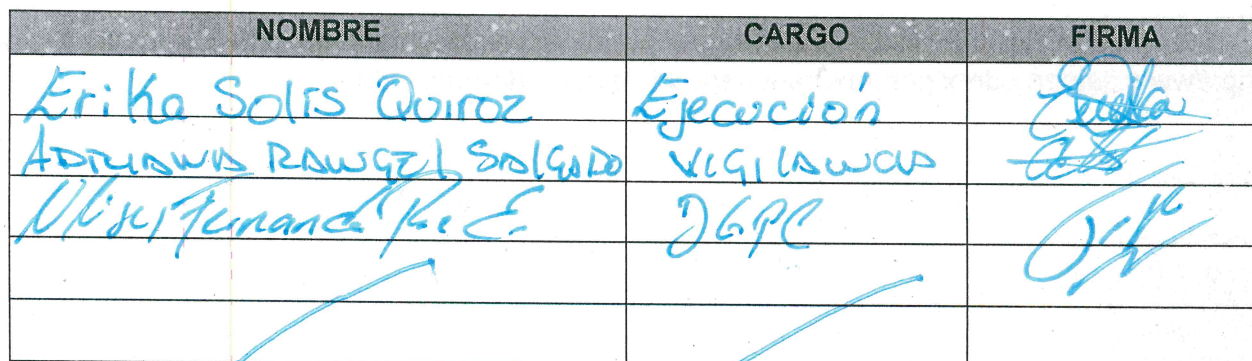 NOMBRE CARGO FIRMA
Erika Solis Quiroz Ejecución
ADRIANA RANGEL SALGADO VIGILANCIA
Fernando DGPC